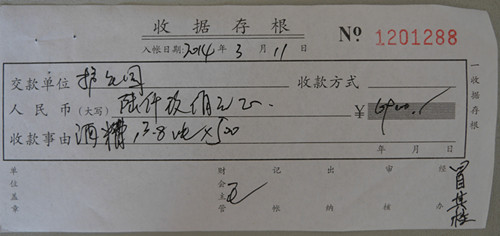 收据存根
№ 1201288
入帐日期: 2014 年 3 月 11 日
交款单位 收款方式
人民币(大写) 陆仟玖佰元正. ¥ 6900.
收款事由 酒糟, 13.8吨×500
年 月 日
单位盖章 财会主管 王 记帐 出纳 审核 经办
一收据存根